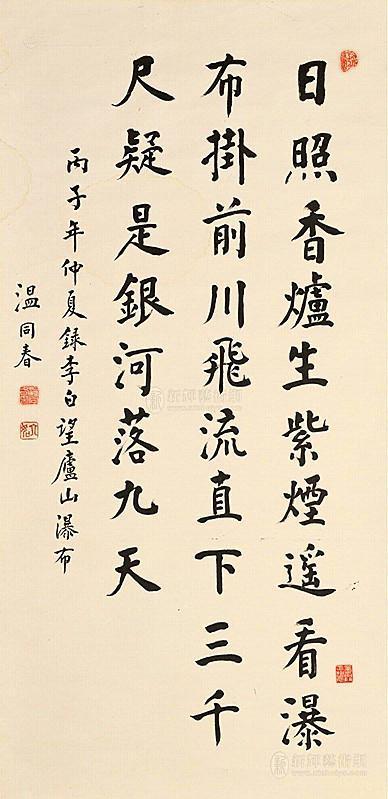 日照香爐生紫煙遥看瀑
布掛前川飛流直下三千
尺疑是銀河落九天
丙子年仲夏録李白望廬山瀑布
温同春